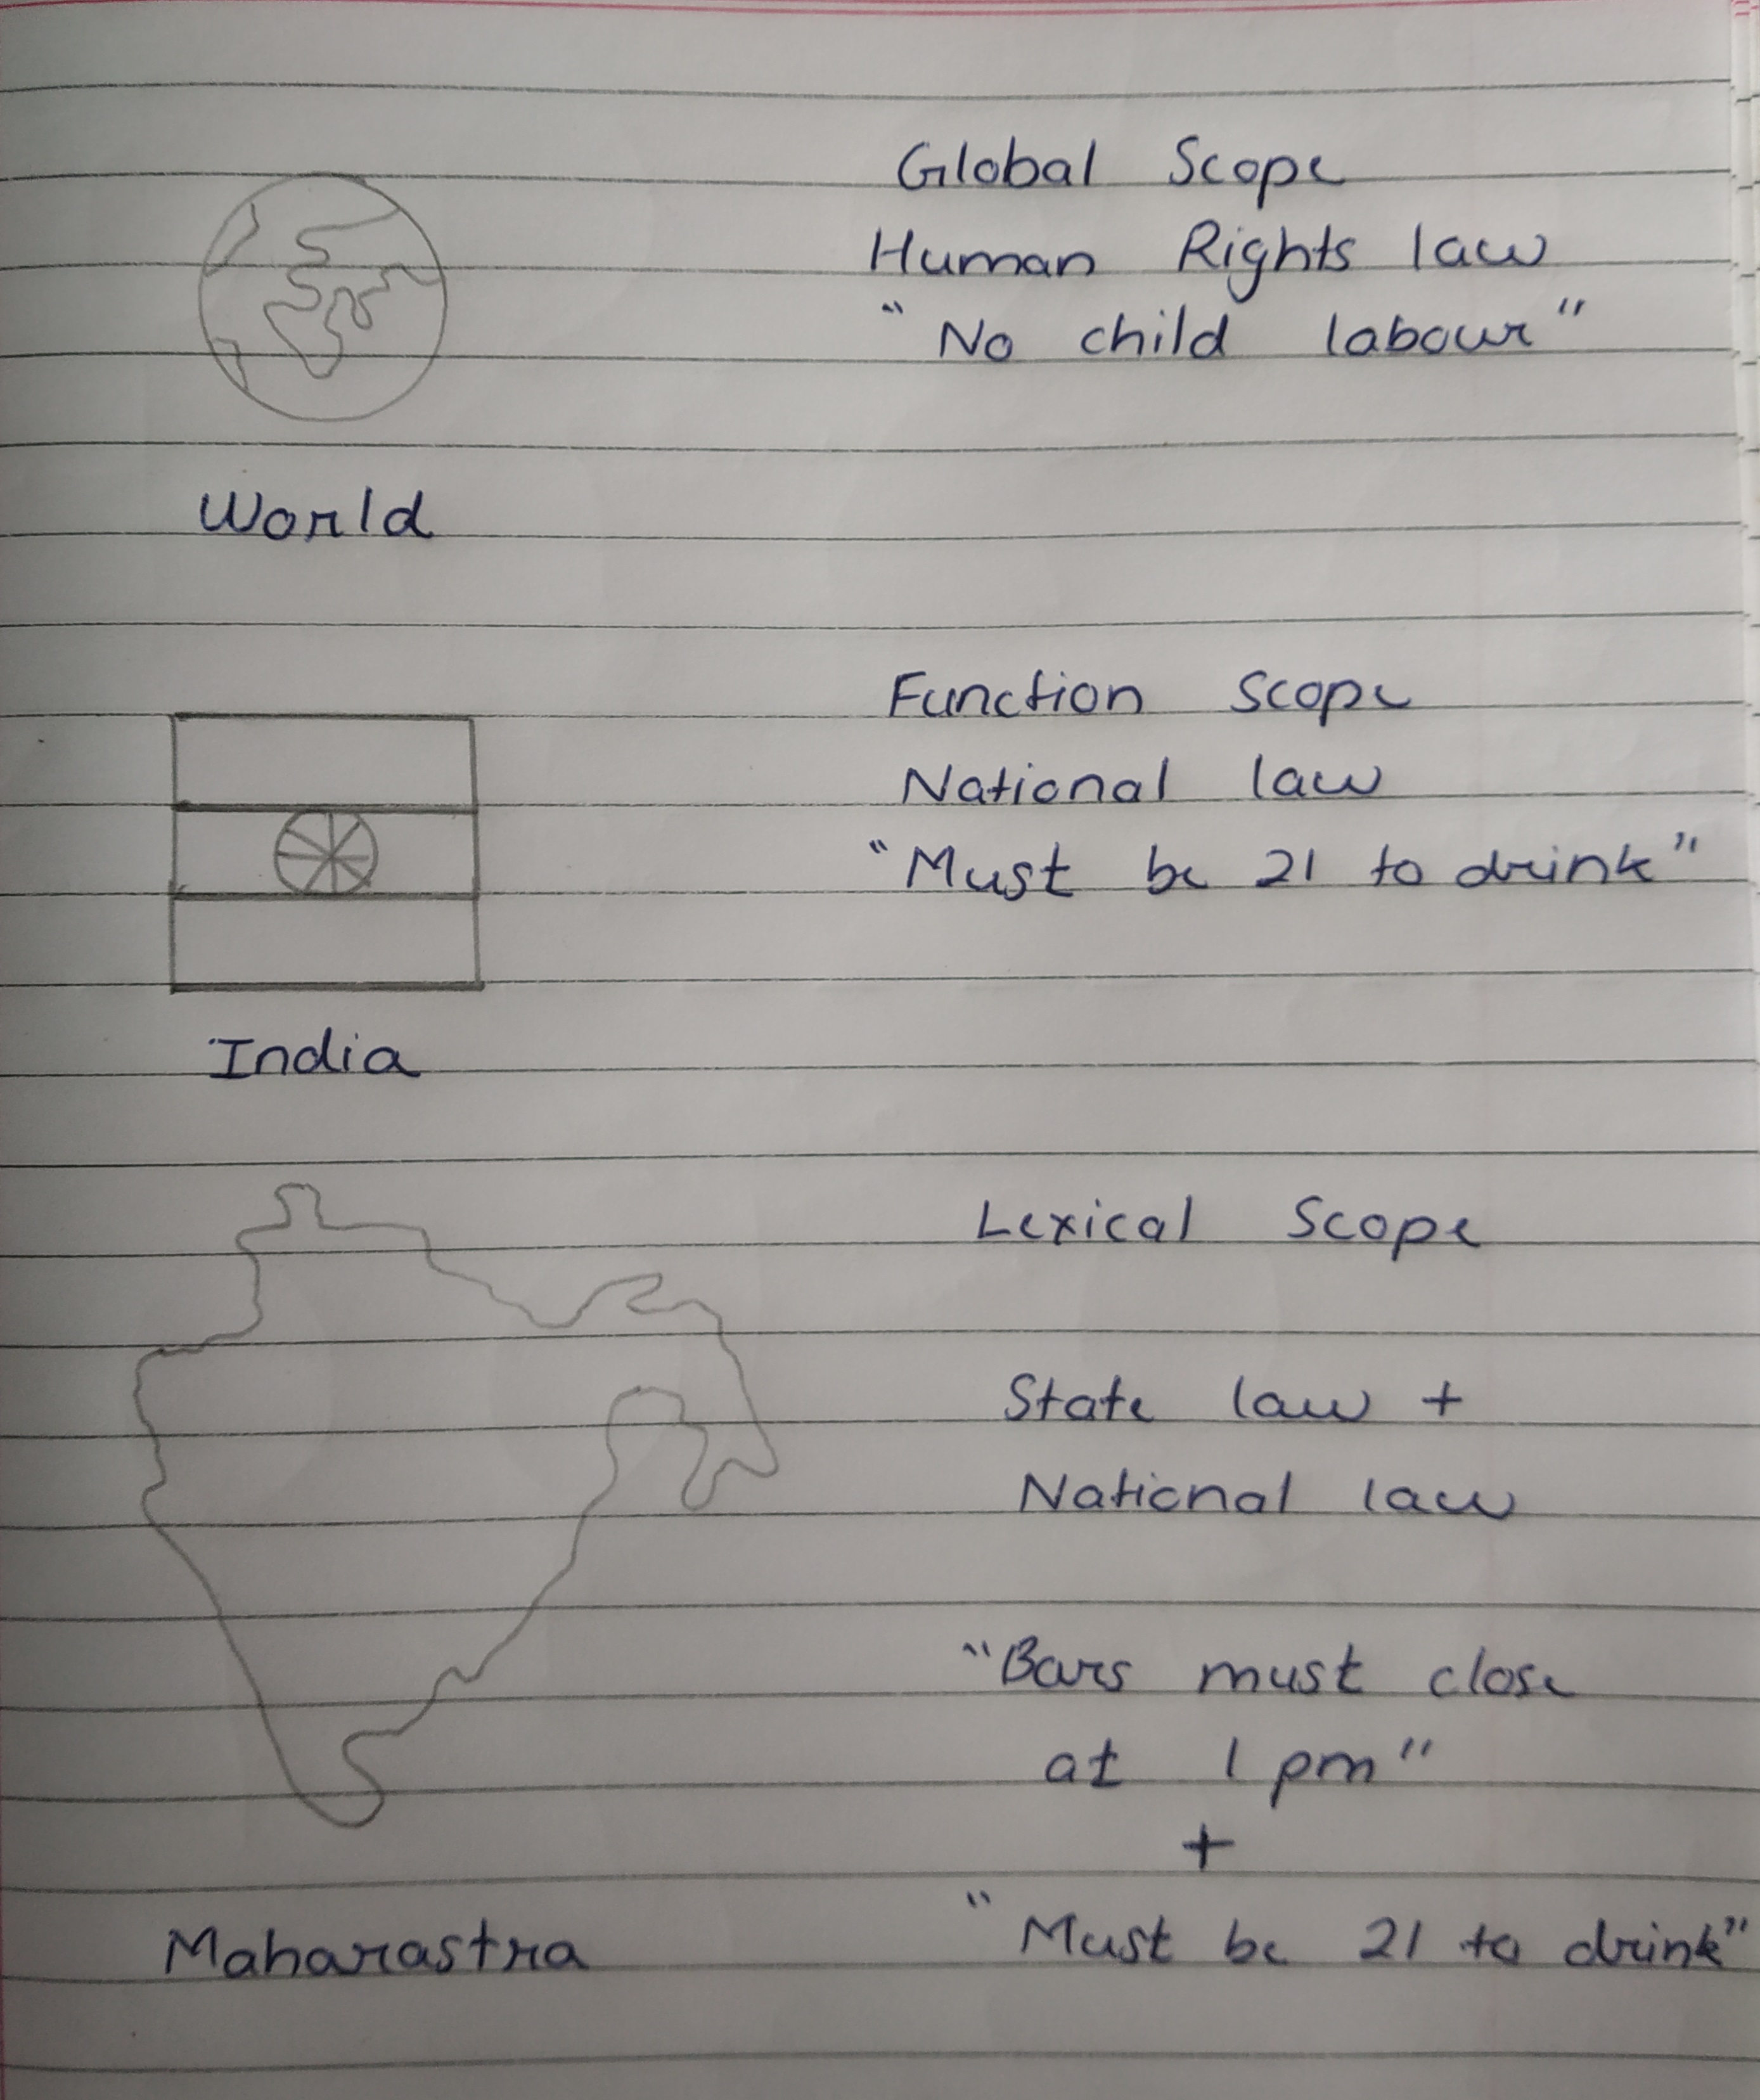 Global Scope
Human Rights law
"No child labour"
World
Function Scope
National law
"Must be 21 to drink"
India
Lexical Scope
State law +
National law
"Bars must close
at 1 pm"
+
"Must be 21 to drink"
Maharastra